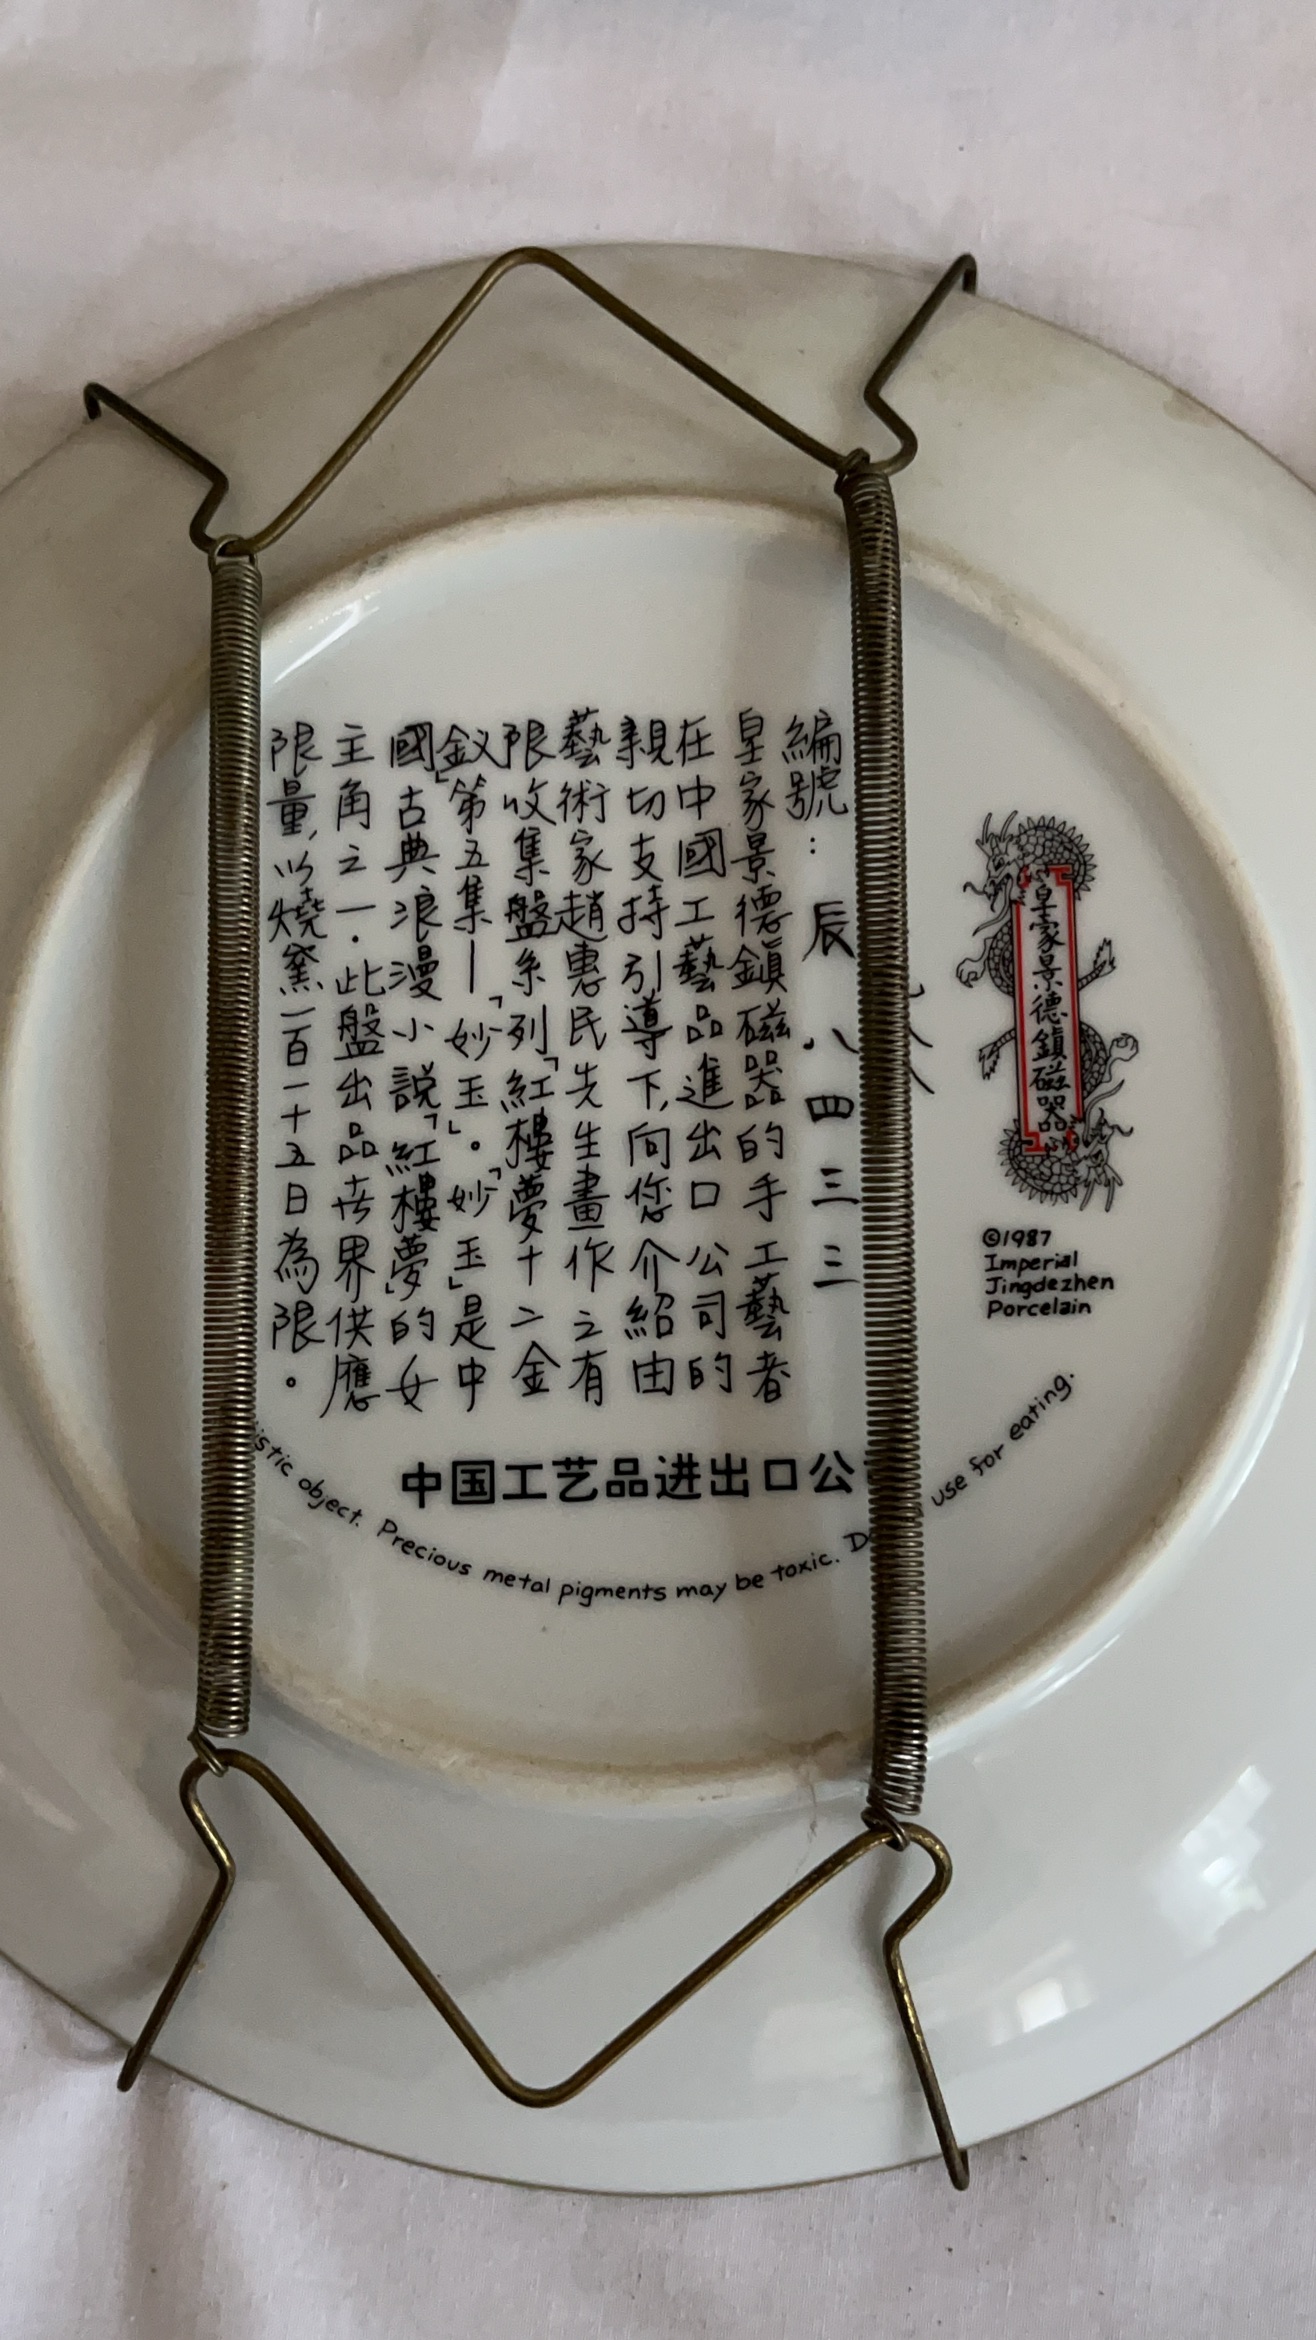 皇家景德鎮磁器
©1987
Imperial
Jingdezhen
Porcelain
編號：辰八四三三
皇家景德鎮磁器的手工藝者
在中國工藝品進出口公司的
親切支持引導下,向您介紹由
藝術家趙惠民先生畫作之有
限收集盤系列「紅樓夢十二金
釵」第五集—「妙玉」。「妙玉」是中
國古典浪漫小說「紅樓夢」的女
主角之一.此盤出品世界供應
限量,以燒窯一百一十五日為限。
中国工艺品进出口公
object. Precious metal pigments may be toxic. use for eating.